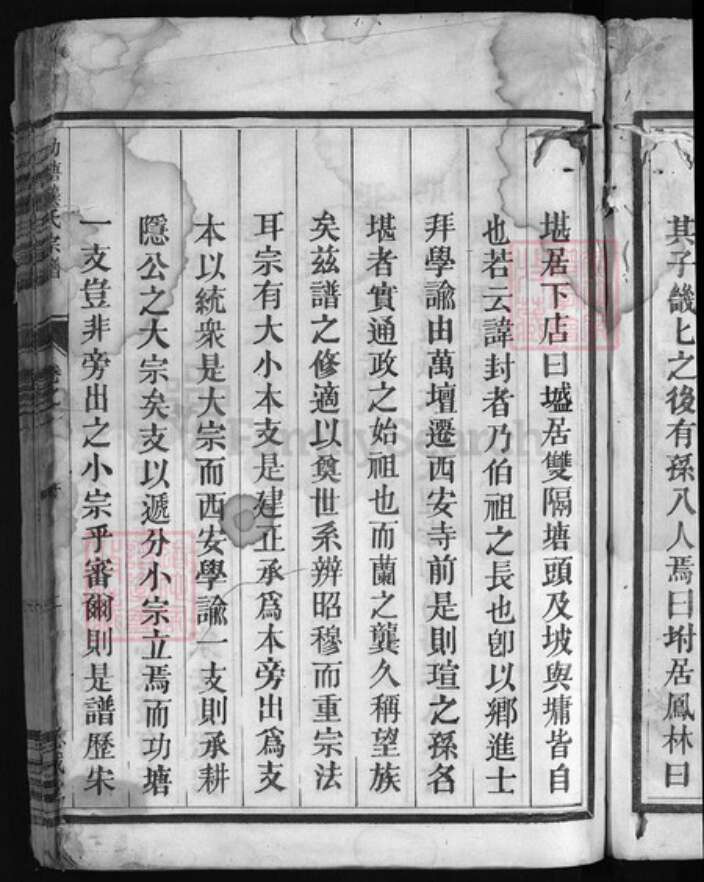 其子畿七之後有孫八人焉曰坿居鳳林曰
堪居下店曰壚居雙隔塘頭及坡與墉皆自
也若云諱封者乃伯祖之長也卽以鄉進士
拜學諭由萬壇遷西安寺前是則瑄之孫名
堪者實通政之始祖也而蘭之龔久稱望族
矣茲譜之修適以奠世系辨昭穆而重宗法
耳宗有大小本支是建正承爲本旁出爲支
本以統衆是大宗而西安學諭一支則承耕
隱公之大宗矣支以遞分小宗立焉而功塘
一支豈非旁出之小宗乎審爾則是譜歷宋
氏宗譜
FamilySearch